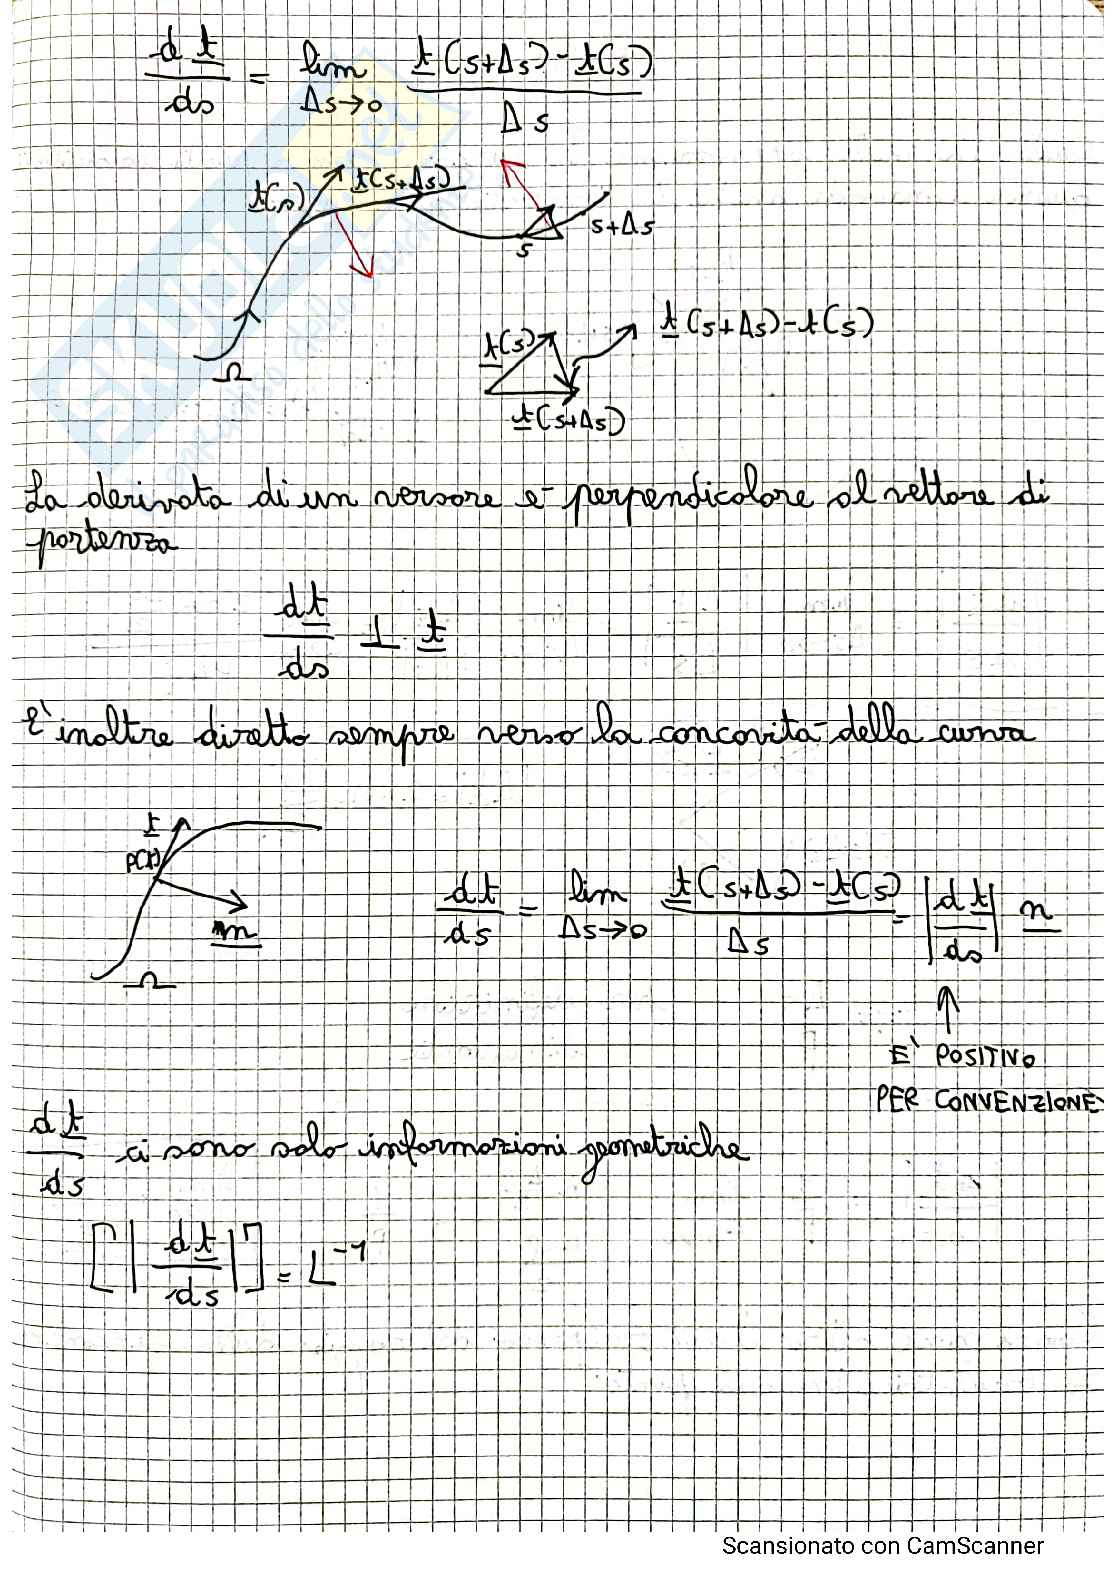 dt/ds = lim Δs→0 t(s+Δs) - t(s) / Δs
t(s) t(s+Δs)
s s+Δs
Ω
t(s) t(s+Δs) - t(s)
t(s+Δs)
La derivata di un versore è perpendicolare al vettore di
partenza
dt/ds ⊥ t
E' inoltre diretto sempre verso la concavità della curva
t
P(t)
n
Ω
dt/ds = lim Δs→0 t(s+Δs) - t(s) / Δs = |dt/ds| n
↑
E' POSITIVO
PER CONVENZIONE
dt/ds ci sono solo informazioni geometriche
[|dt/ds|] = L⁻¹
Scansionato con CamScanner